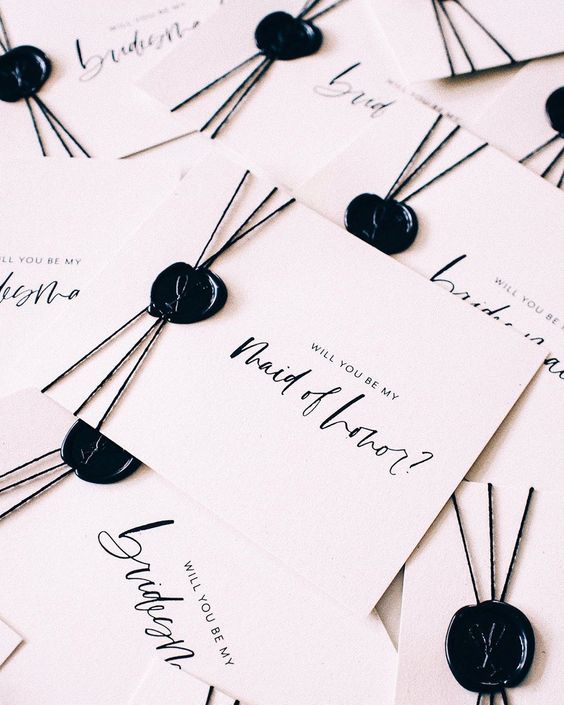 WILL YOU BE MY
bridesma
brid
WILL YOU BE MY
maid of honor?
WILL YOU BE MY
LL YOU BE MY
desma
WILL YOU BE MY
bridesm